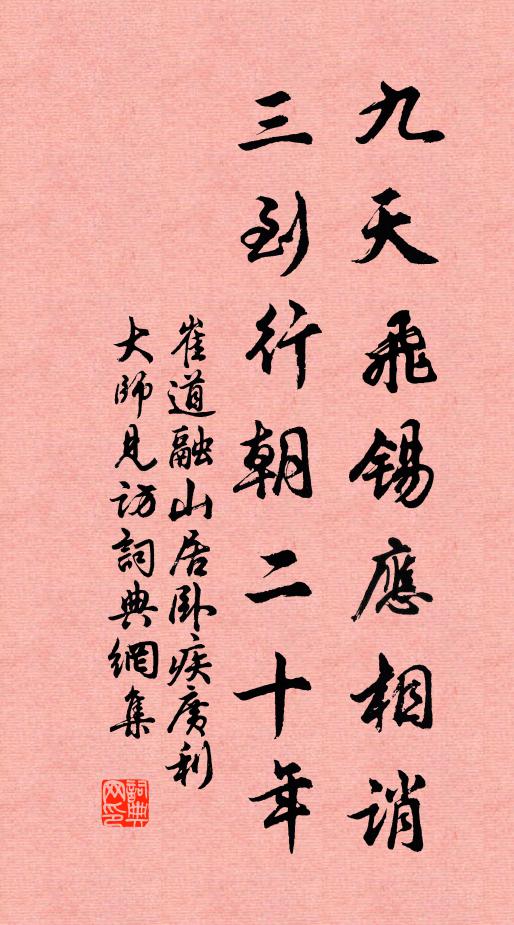 九天飛錫應相誚
三到行朝二十年
崔道融山居卧疾廣利
大師見訪詞典網集
詞典
网印